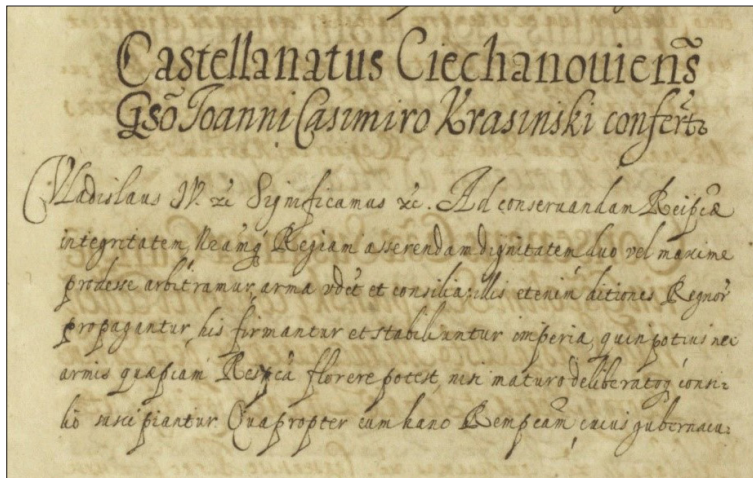 Castellanatus Ciechanouiens̃
Gsõ Joanni Casimiro Krasinski confert̃
Vladislaus IV. &c Significamus &c. Ad conseruandam Reipcæ
integritatem, Nramq̃ Regiam asserendam dignitatem duo vel maxime
prodesse arbitramur, arma vdet et consilia; illis etenim ditiones Regnor
propagantur, his firmantur et stabiliuntur imperia, quin potius nec
armis quæpiam Respca florere potest, nisi maturo deliberatoq consi-
lio suscipiantur Quapropter cum hanc Rempcam, cuius gubernacu-